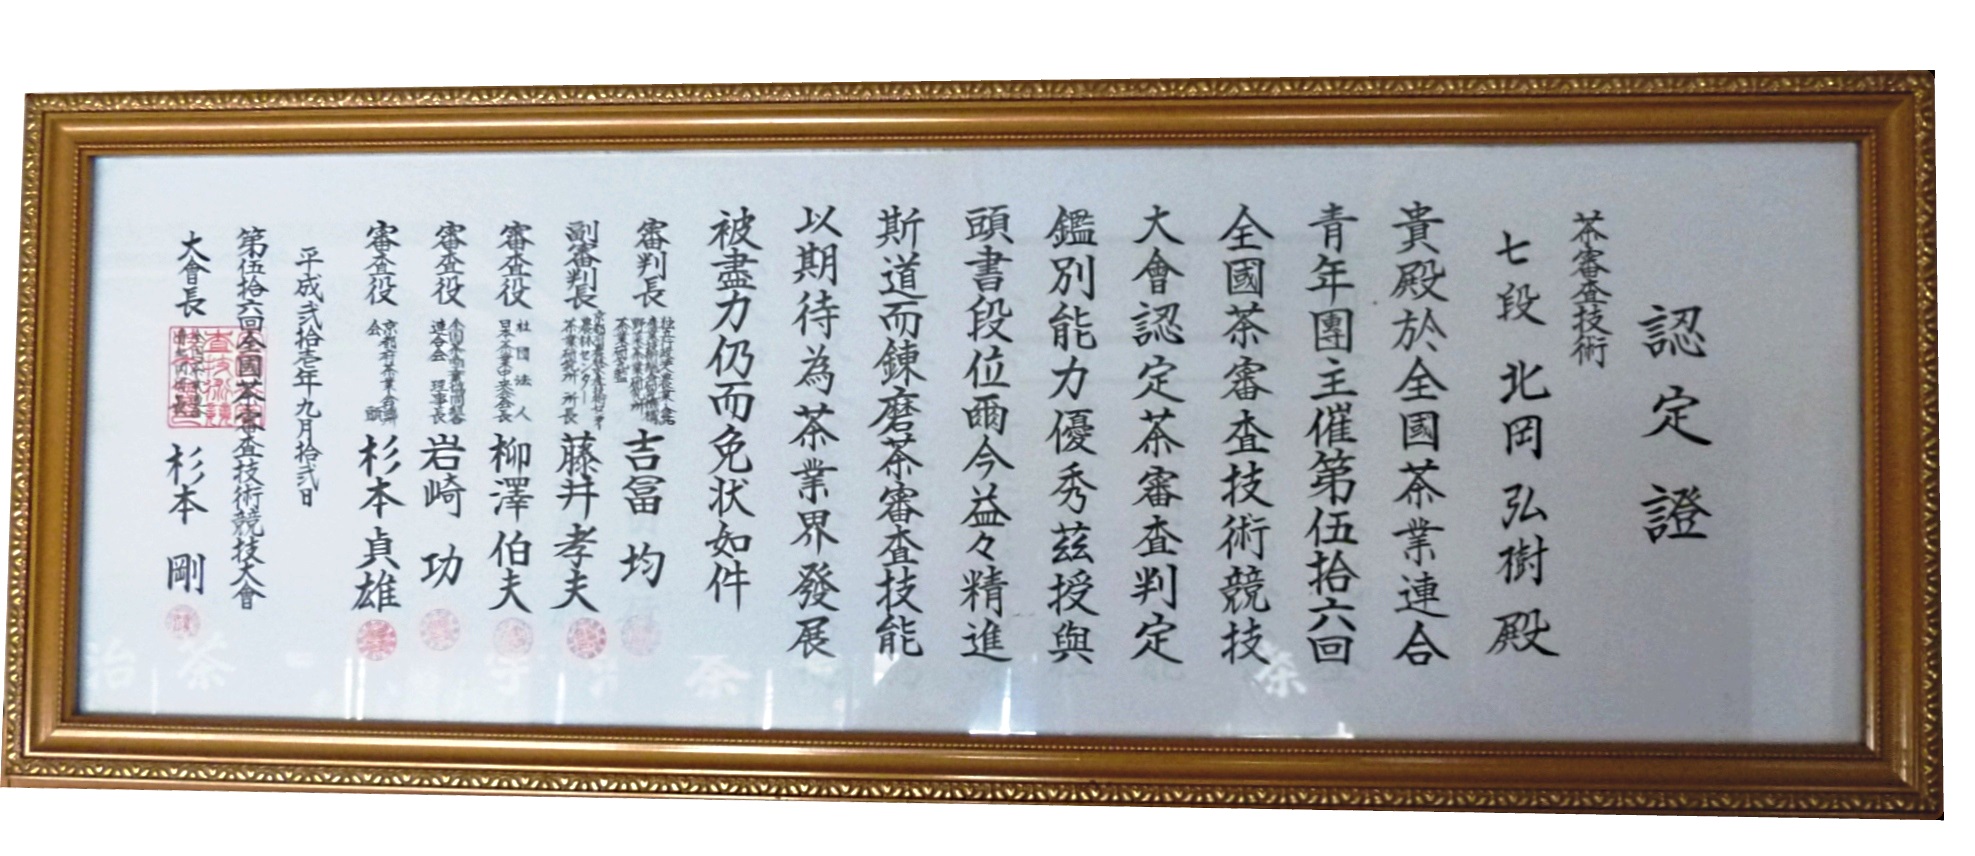 認定證
茶審査技術
七段 北岡弘樹殿
貴殿於全國茶業連合
青年團主催第伍拾六回
全國茶審査技術競技
大會認定茶審査判定
鑑別能力優秀茲授與
頭書段位爾今益々精進
斯道而錬磨茶審査技能
以期待為茶業界發展
被盡力仍而免状如件
審判長
吉冨 均
副審判長
茶業研究所 所長
藤井孝夫
審査役
社団法人
日本茶業中央会会長
柳澤伯夫
審査役
連合会 理事長
岩崎 功
審査役
京都府茶業会議
会 顧
杉本貞雄
平成弐拾壱年九月拾弐日
第伍拾六回全國茶審査技術競技大會
大會長 杉本 剛
治 茶 宇 茶 茶